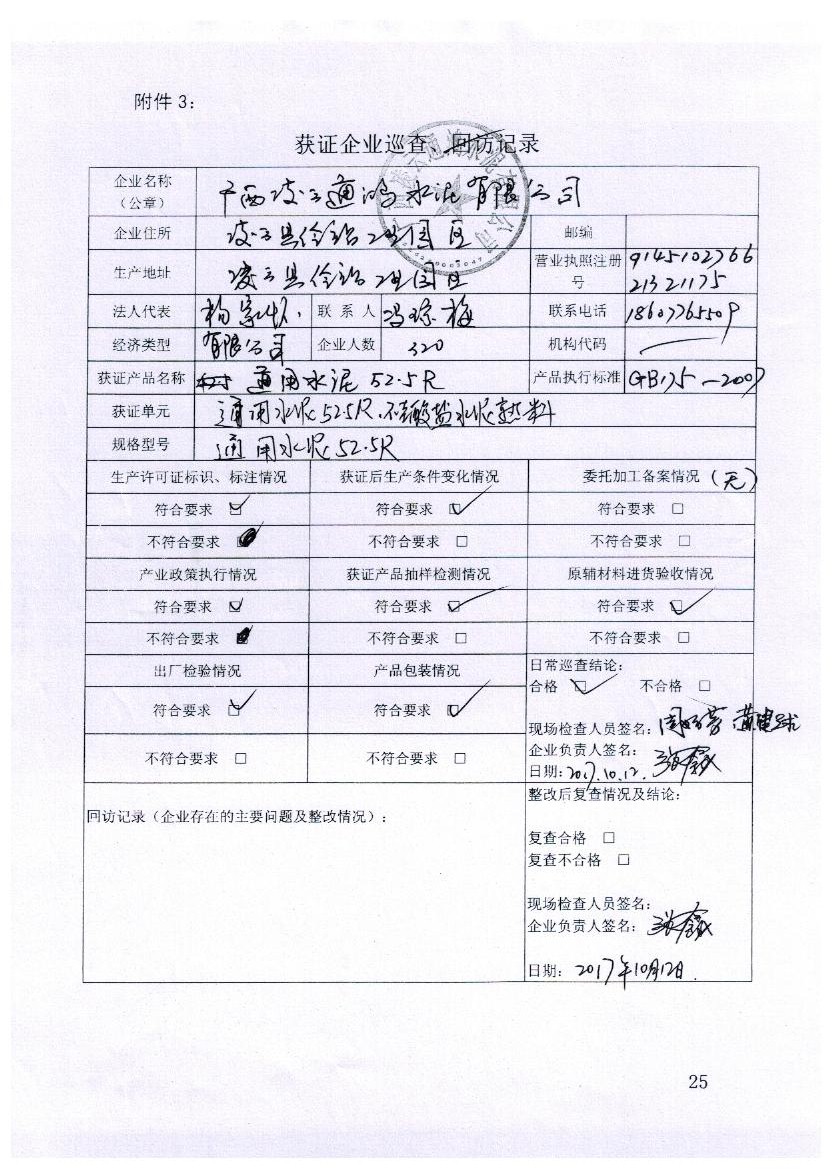 附件 3：
获证企业巡查、回访记录
企业名称（公章） 广西凌云通鸿水泥有限公司
企业住所 凌云县伶站工业园区 邮编
生产地址 凌云县伶站工业园区 营业执照注册号 9145102776621321175
法人代表 联系人 冯琼梅 联系电话 18607765509
经济类型 有限公司 企业人数 320 机构代码
获证产品名称 通用水泥 52.5R 产品执行标准 GB175-2007
获证单元 通用水泥52.5R、硅酸盐水泥熟料
规格型号 通用水泥52.5R
生产许可证标识、标注情况 获证后生产条件变化情况 委托加工备案情况（无）
符合要求 ☑ 符合要求 ☑ 符合要求 □
不符合要求 不符合要求 □ 不符合要求 □
产业政策执行情况 获证产品抽样检测情况 原辅材料进货验收情况
符合要求 ☑ 符合要求 ☑ 符合要求 ☑
不符合要求 不符合要求 □ 不符合要求 □
出厂检验情况 产品包装情况 日常巡查结论：
合格 ☑ 不合格 □
符合要求 ☑ 符合要求 ☑
现场检查人员签名：
企业负责人签名：
不符合要求 □ 不符合要求 □
日期：2017.10.12.
回访记录（企业存在的主要问题及整改情况）：
整改后复查情况及结论：
复查合格 □
复查不合格 □
现场检查人员签名：
企业负责人签名：
日期： 2017年10月12日.
25